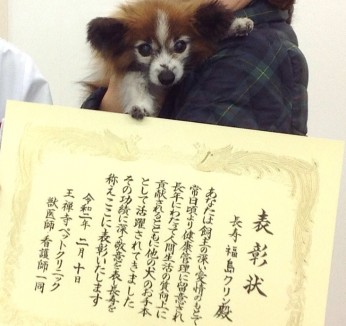 表彰状
長寿 福島クリン殿
あなたは飼主の深い愛情のもとで
常日頃より健康管理に留意され
長年にわたって人間生活の質向上に
貢献されるとともに他の犬のお手本
として活躍されてきました
その功績に深い敬意を表し長寿を
称えここに表彰いたします
令和二年 二月十日
王禅寺ペットクリニック
獣医師 看護師一同